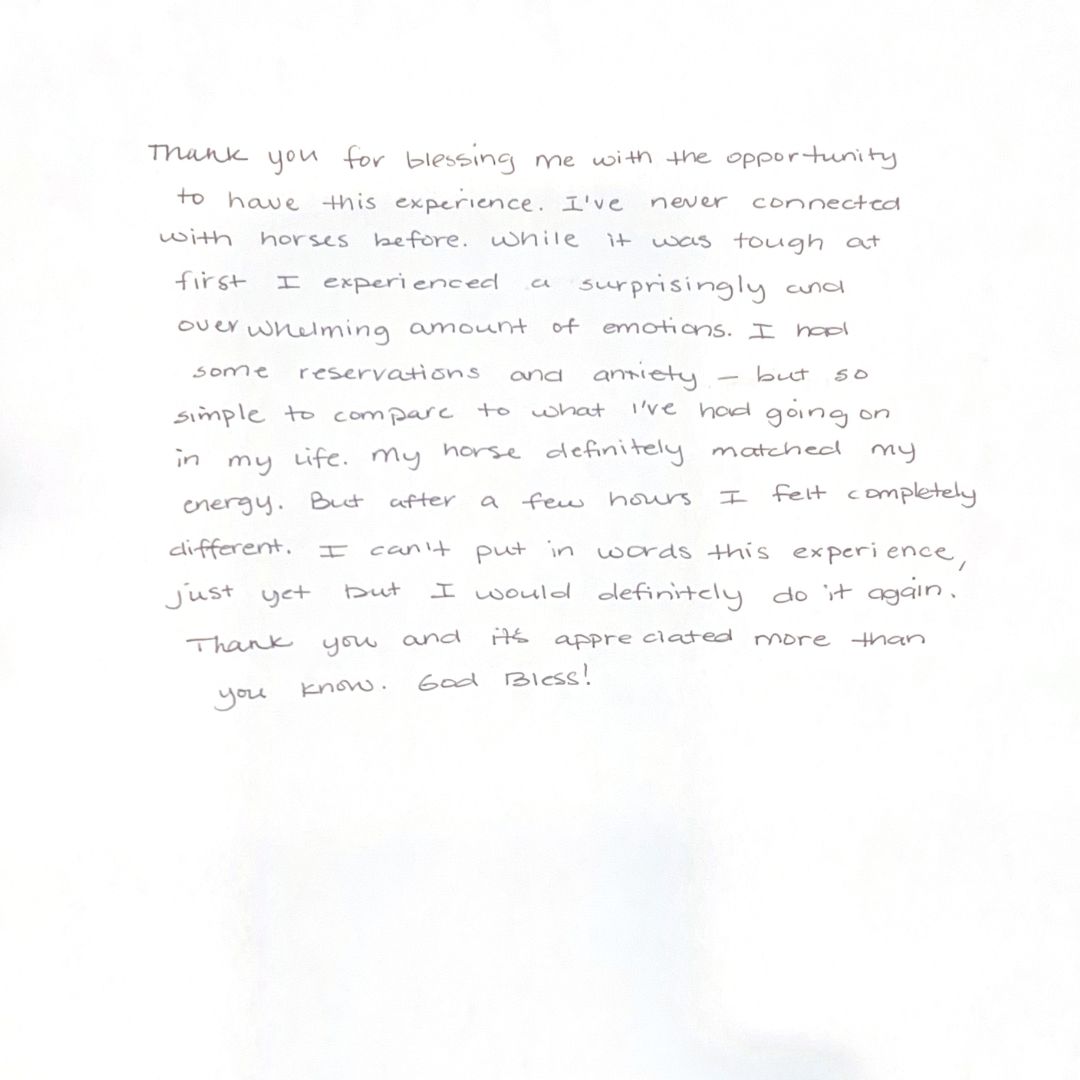 Thank you for blessing me with the opportunity
to have this experience. I've never connected
with horses before. While it was tough at
first I experienced a surprisingly and
overwhelming amount of emotions. I had
some reservations and anxiety – but so
simple to compare to what I've had going on
in my life. My horse definitely matched my
energy. But after a few hours I felt completely
different. I can't put in words this experience,
just yet but I would definitely do it again.
Thank you and it's appreciated more than
you know. God Bless!